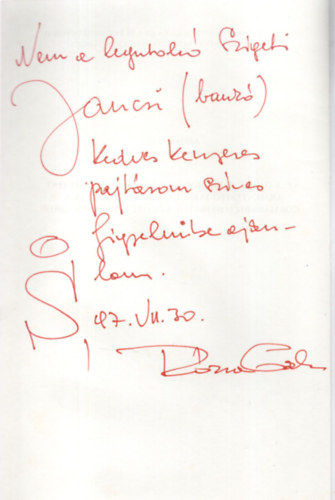 Nem a legutolsó Szigeti
Jancsi (bauzó)
Kedves kenyeres
pajtásom szíves
figyelmibe aján-
lom.
97. VII. 30.